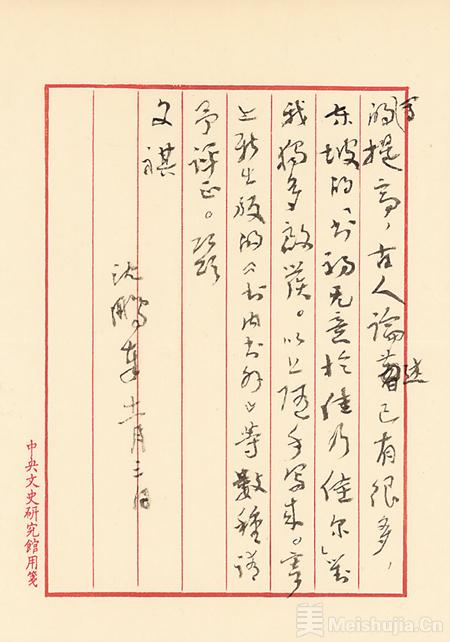 的提高，古人论述已有很多，
东坡的「书初无意於佳乃佳尔」对
我独多启发。以上随手写来。寄
上新出版的《书内书外》等数种请
予评正。顺颂
文祺
沈鹏 月三日
中央文史研究館用箋
美 Meishujia.Cn